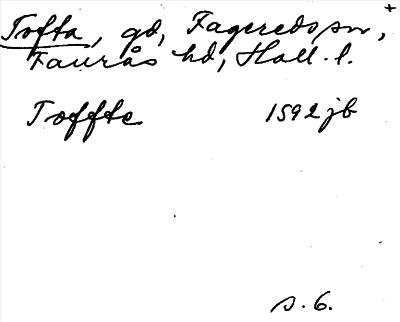 Tofta, gd, Fagereds sn,
Faurås hd, Hall. l.
Toffte 1592 jb
s. 6.